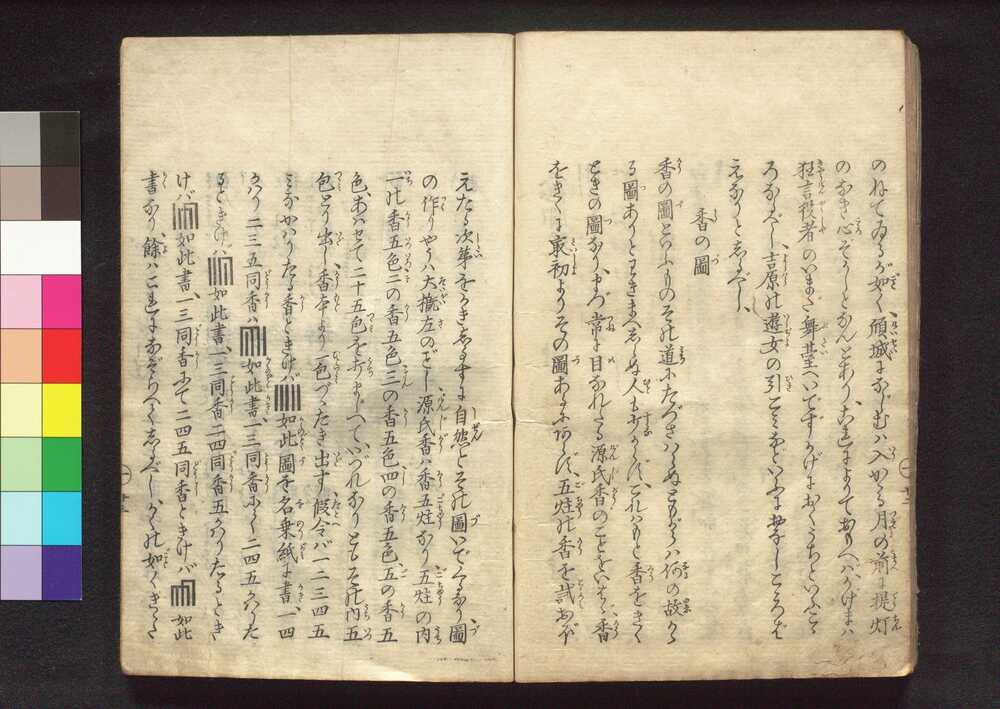 のねてゐるが如く、傾城になじむハ入かゝる月の前に提灯
のなき心
狂言役者のいまだ舞臺へいでずかげにおくうちといふこゝ
ろなるべし、吉原の遊女の引こミ
えなりとしるべし、
香の圖
香の圖といふものその道にたづさハらぬともがらハ何の故かゝ
る圖ありとわきまへしらぬ人もすくなからず、これハもと香をきく
ときの圖なり、まづ常に目なれたる源氏香のことをいはゞ、香
をきくに最初よりその圖あるにあらず、五炷の香を試
えたる次第をかきしるすに自然とその圖いでくるなり圖
の作りやうハ大概左のごとし源氏香ハ香五炷なり五炷の内
一の香五色二の香五色三の香五色四の香五色五の香五
色、あハせて二十五色を打まじへて、いづれなりともその内五
包とり出し香本より一色づゝたき出す假令バ一二三四五
ミなかハりたる香ときけバ 如此圖を名乗紙に書、一四
かハり二三五同香ハ 如此書一三同香にて二四五かハりた
るときけバ 如此書、一三同香二四同香五かハりたるとき
けバ 如此書、一三同香にて二四五同香ときけバ 如此
書なり、餘ハこれになぞらへてしるべし、かくの如くきゝた